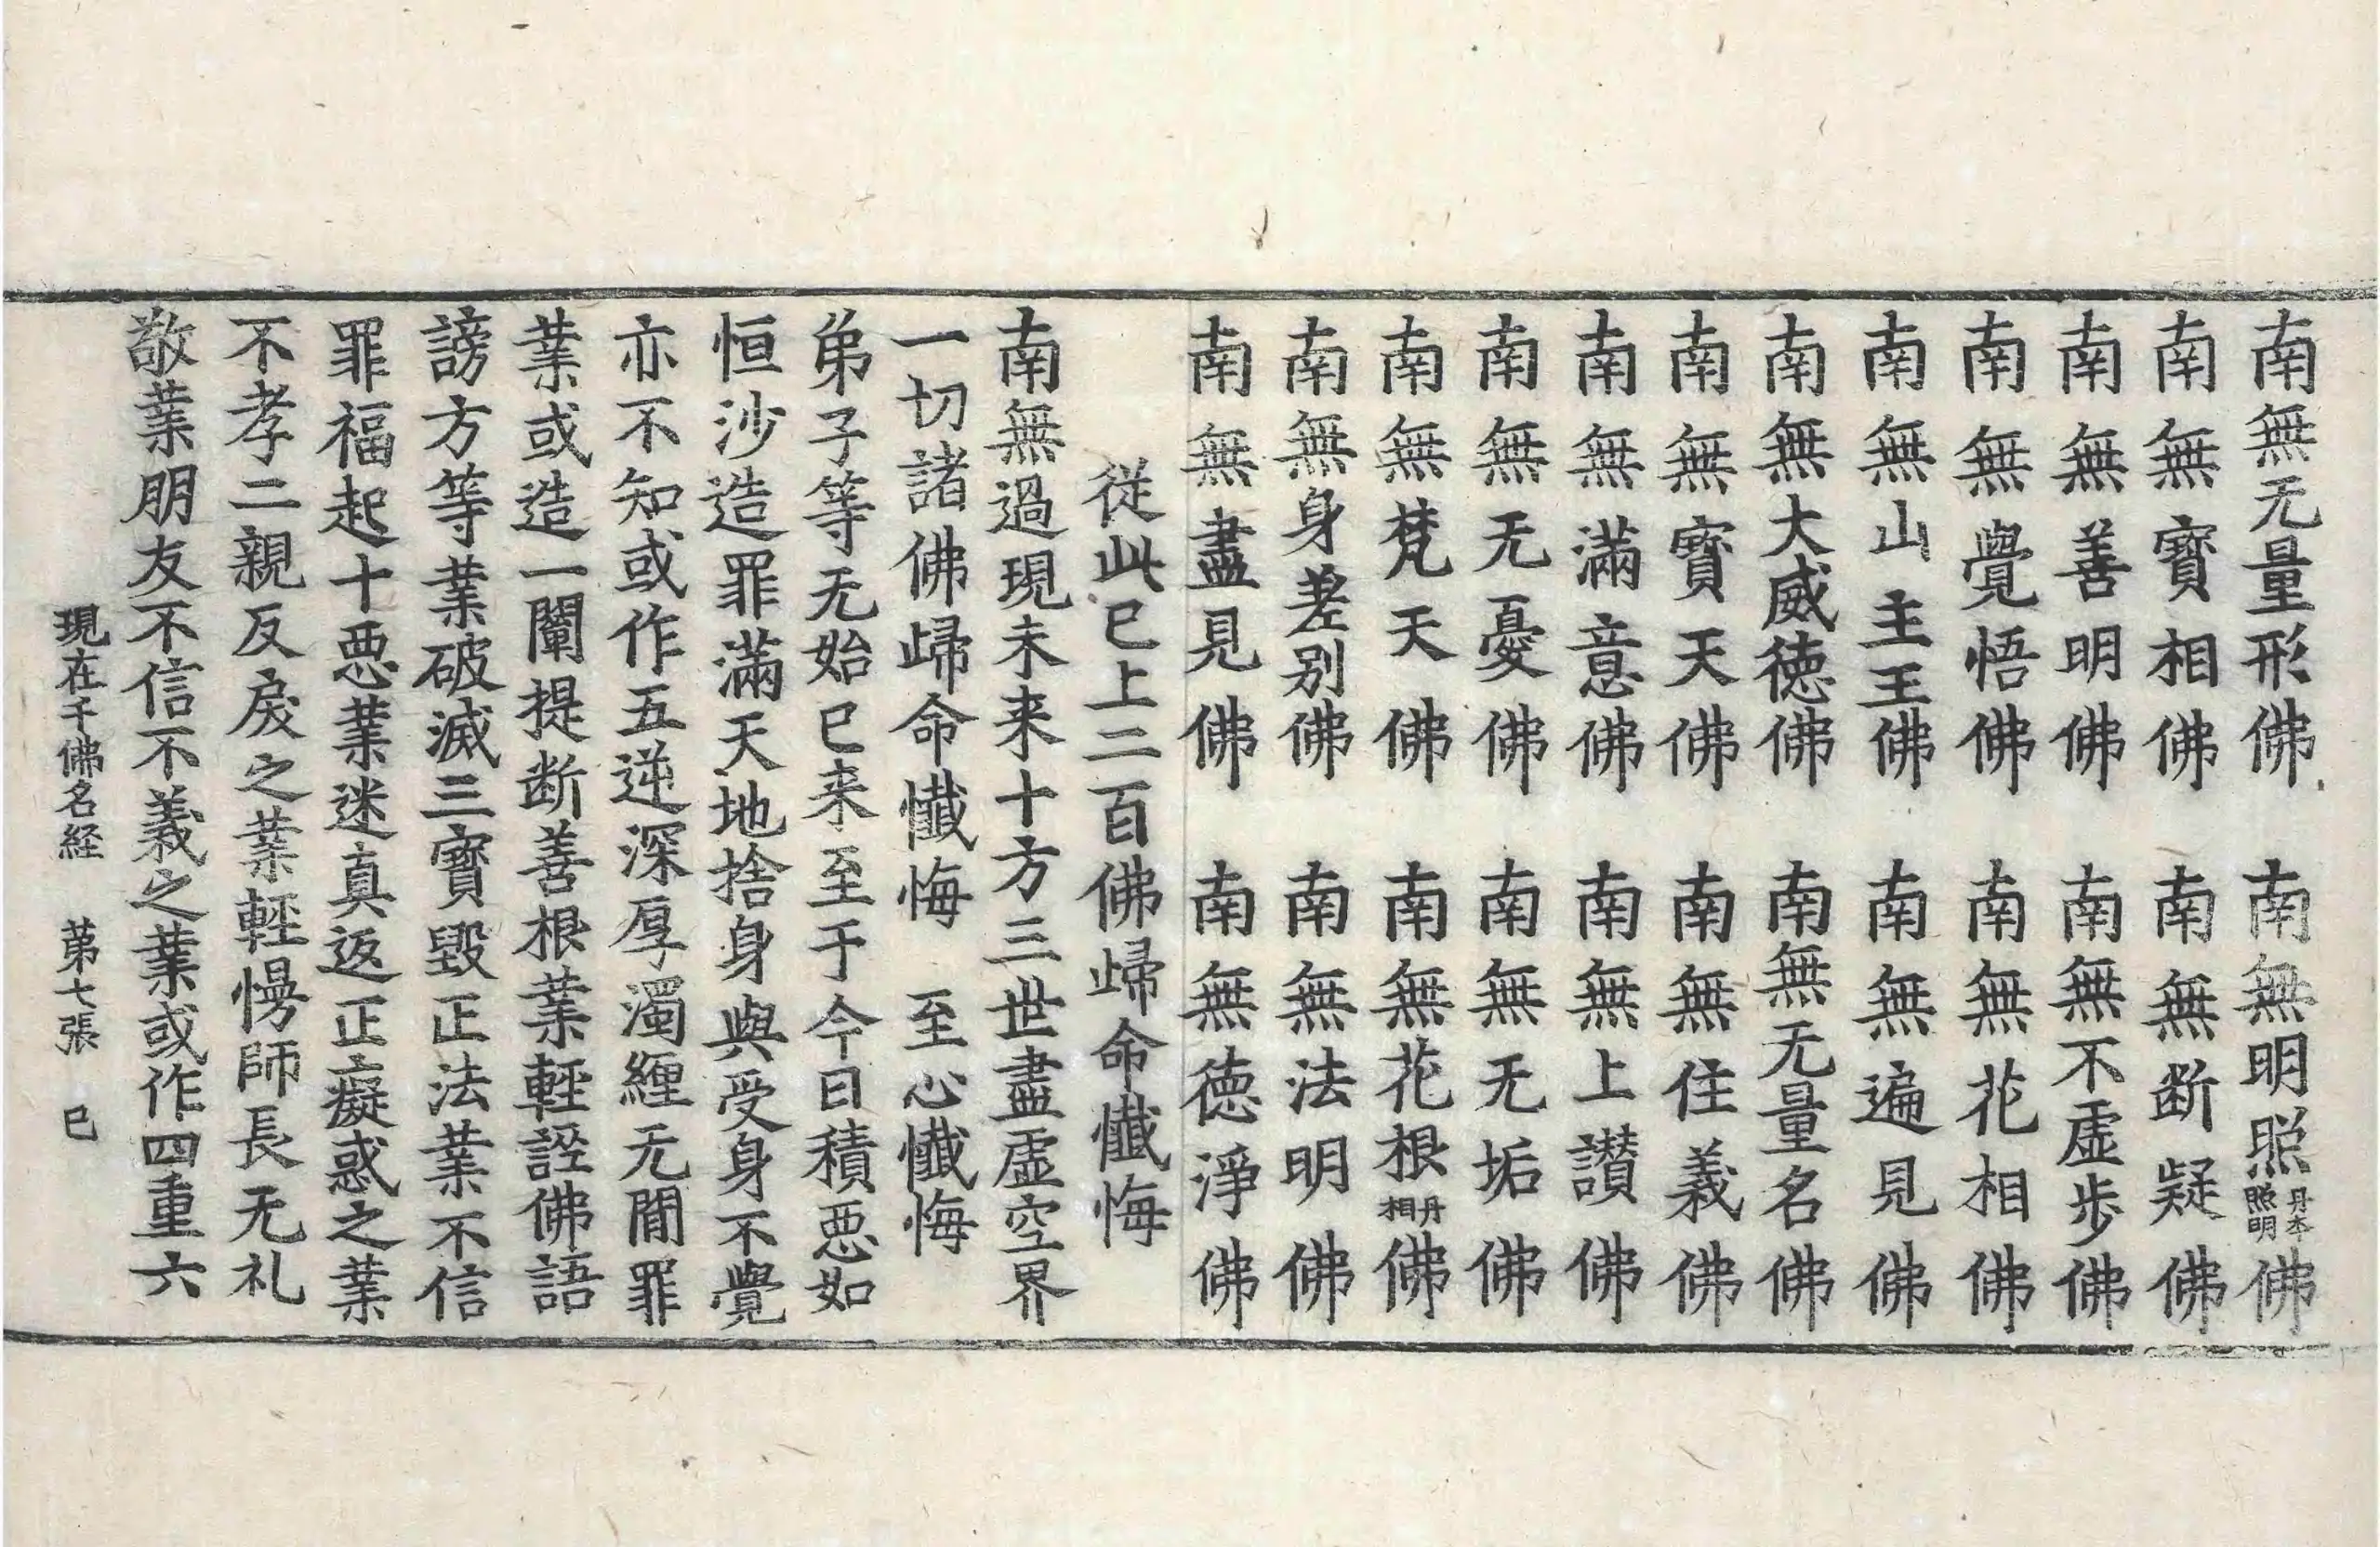 南無无量形佛　南無明照丹本照明佛
南無寶相佛　南無断疑佛
南無善明佛　南無不虛步佛
南無覺悟佛　南無花相佛
南無山主王佛　南無遍見佛
南無大威徳佛　南無无量名佛
南無寶天佛　南無住義佛
南無滿意佛　南無上讃佛
南無无憂佛　南無无垢佛
南無梵天佛　南無花根丹相佛
南無身差別佛　南無法明佛
南無盡見佛　南無徳淨佛
從此巳上二百佛歸命懺悔
南無過現未来十方三世盡虛空界
一切諸佛歸命懺悔　至心懺悔
弟子等无始已来至于今日積惡如
恒沙造罪滿天地捨身與受身不覺
亦不知或作五逆深厚濁纒无間罪
業或造一闡提断善根業輕誣佛語
謗方等業破滅三寶毀正法業不信
罪福起十惡業迷真返正癡惑之業
不孝二親反戾之業輕慢師長无礼
敬業朋友不信不義之業或作四重六
現在千佛名経　第七張　巳